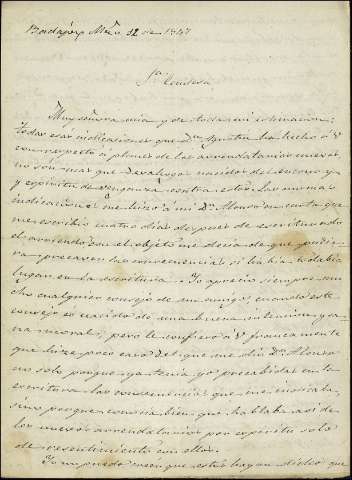 Badajoz y Mzo 12 de 1847
Sra Condesa
Muy señora mia y de toda mi estimacion:
todas esas indicaciones que Dn Agustin ha hecho á V
con respecto á planes de los arrendatarios nuevos,
no son mas que desahogos nacidos del encono
y espiritu de venganza contra estos. Las mismas
indicaciones me hizo á mi Dn Alonso en carta que
me escribió cuatro dias despues de escriturado
el arriendo con el objeto me decia de que pudie-
ra precaver las consecuencias si habia todabia
lugar en la escritura. Yo aprecio siempre mu-
cho cualquier consejo de un amigo, cuando este
consejo es nacido de una buena intencion y sa-
na moral; pero le confieso á V francamente
que hize poco caso del que me dió Dn Alonso
no solo porque ya tenia yo precabidas en la
escritura las consecuencias que me indicaba,
sino porque conocia bien que hablaba asi de
los nuevos arrendatarios por espiritu solo
de resentimiento con ellos.
Yo no puedo creer que estos hayan dicho que